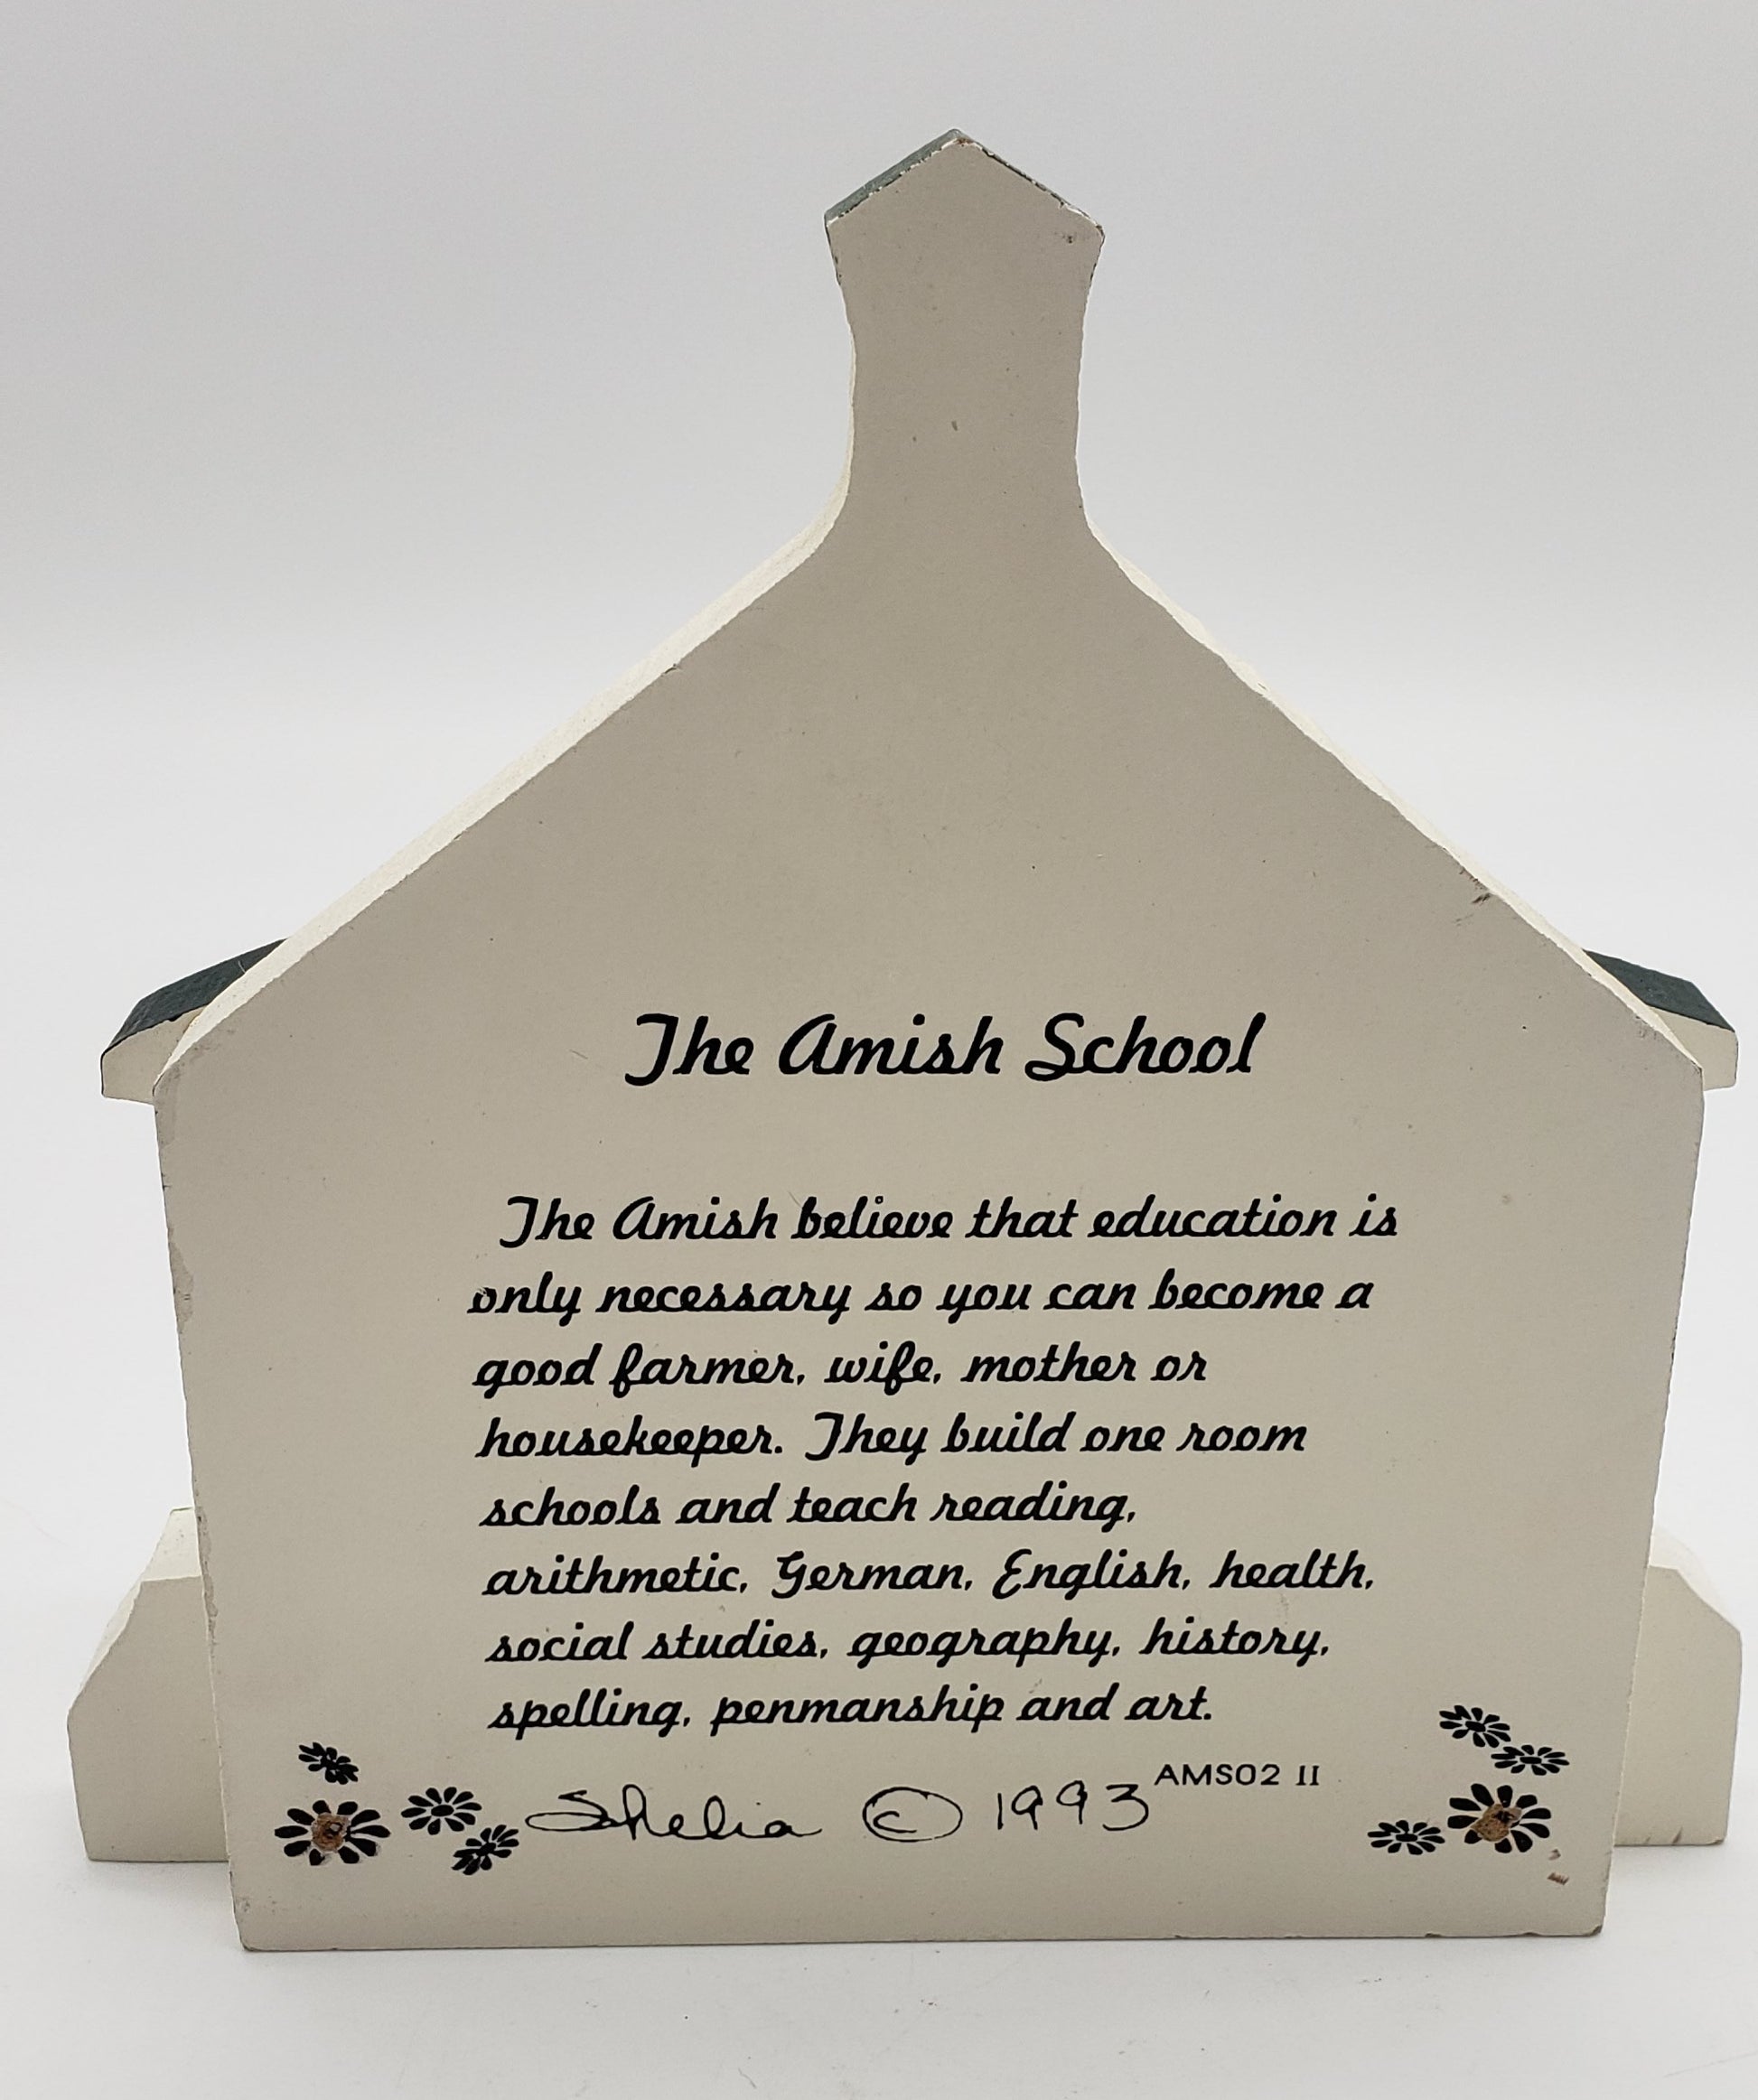 The Amish School
The Amish believe that education is
only necessary so you can become a
good farmer, wife, mother or
housekeeper. They build one room
schools and teach reading,
arithmetic, German, English, health,
social studies, geography, history,
spelling, penmanship and art.
AMS02 II
Shelia © 1993